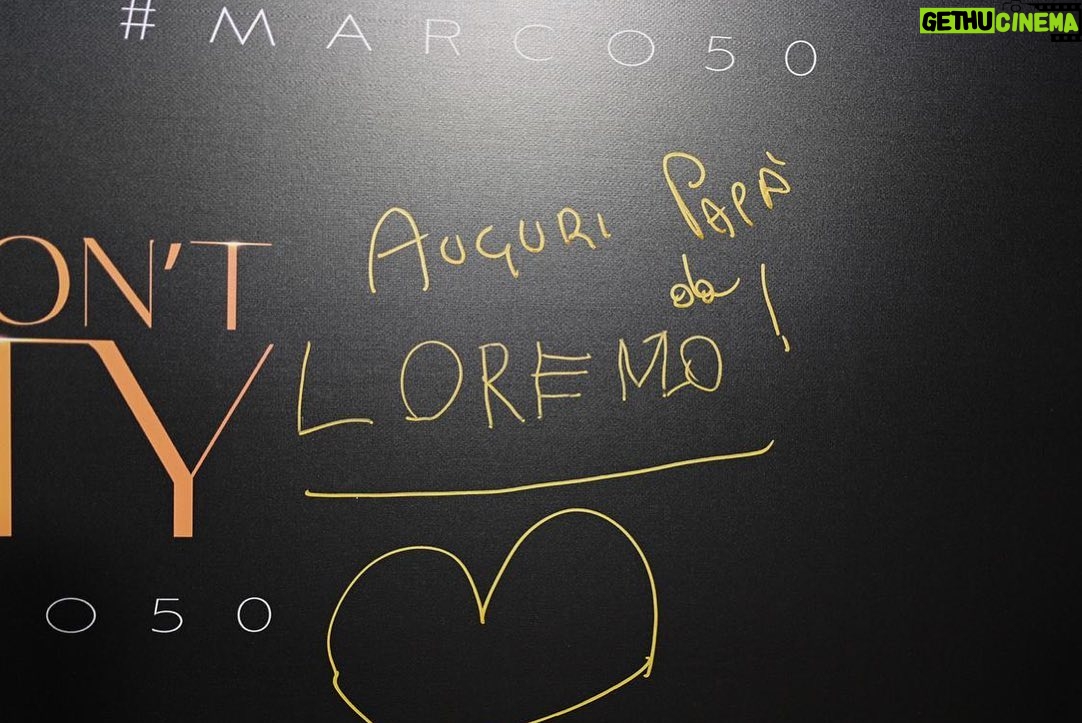 GETHUCINEMA
#MARCO50
AUGURI PAPÀ
da !
ON'T
LOREMO
TY
O50